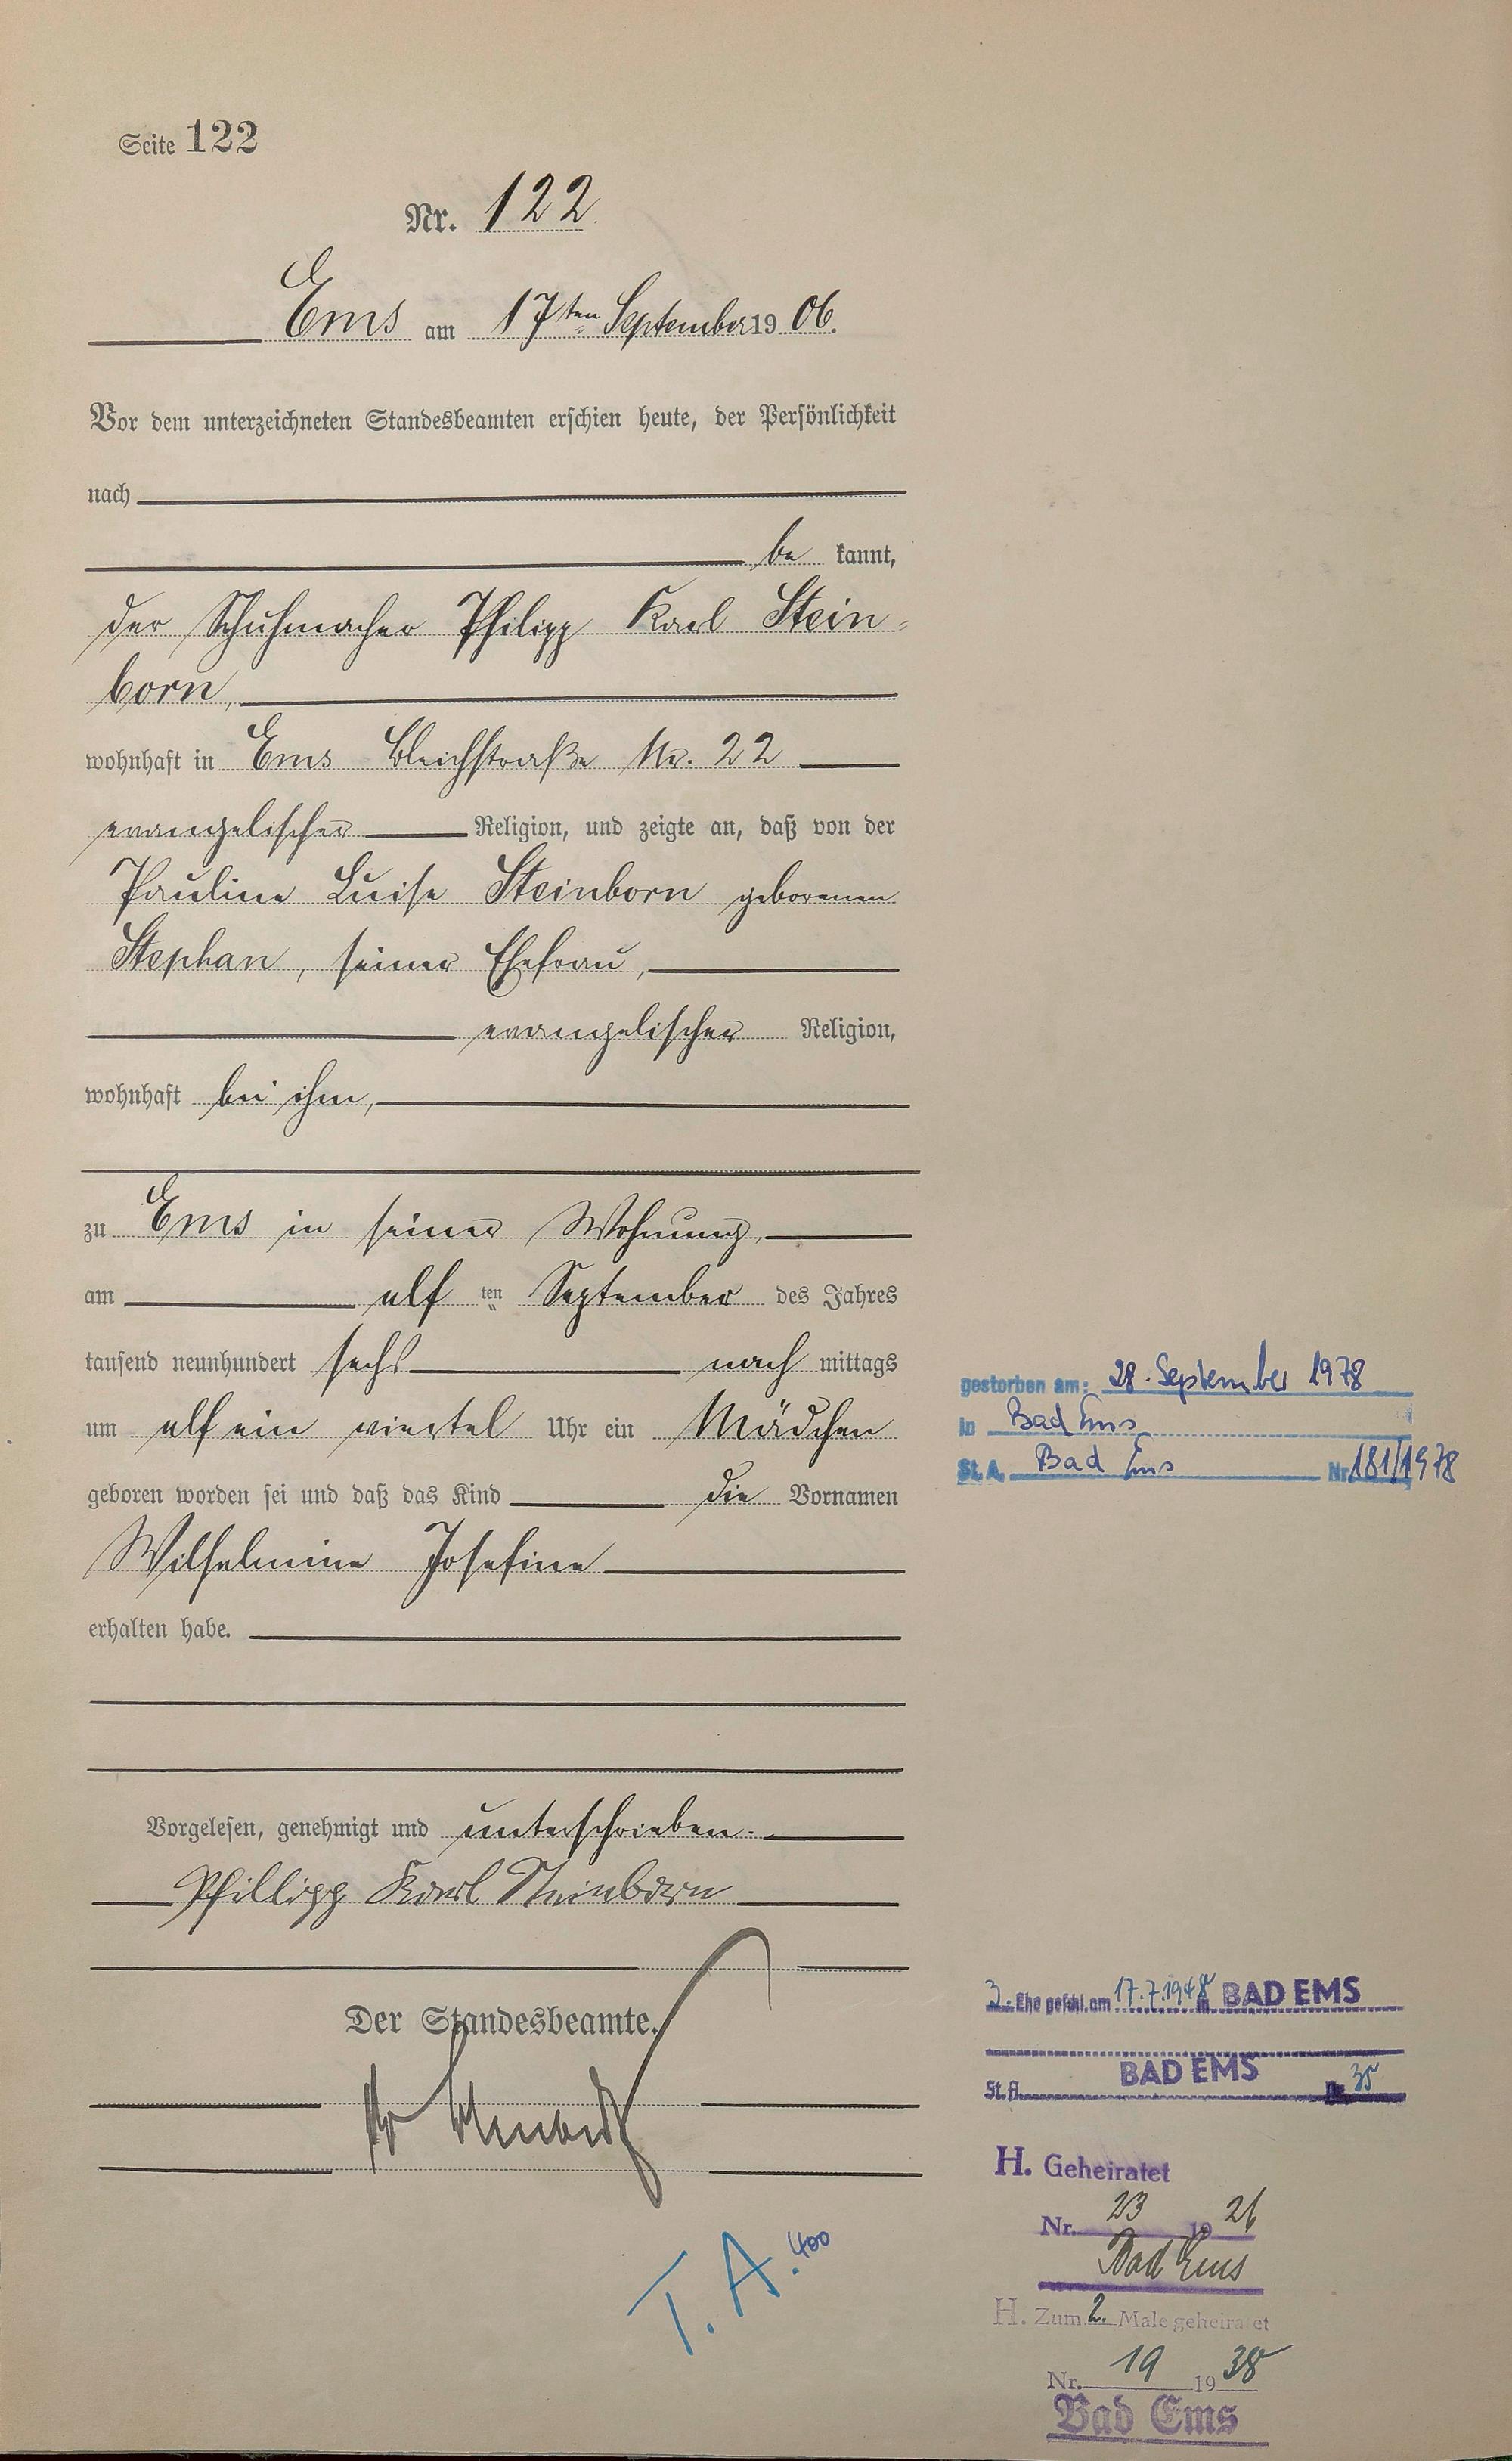 Seite 122
Nr. 122.
Ems am 17ten September 1906.
Vor dem unterzeichneten Standesbeamten erschien heute, der Persönlichkeit
nach
be kannt,
der Schuhmacher Philipp Karl Stein=
born,
wohnhaft in Ems Bleichstraße Nr. 22
evangelischer Religion, und zeigte an, daß von der
Pauline Luise Steinborn geborenen
Stephan, seiner Ehefrau,
evangelischer Religion,
wohnhaft bei ihm,
zu Ems in seiner Wohnung,
am elf ten September des Jahres
tausend neunhundert sechs nach mittags
um elf ein viertel Uhr ein Mädchen
geboren worden sei und daß das Kind die Vornamen
Wilhelmine Josefine
erhalten habe.
Vorgelesen, genehmigt und unterschrieben.
Phillipp Karl Steinborn
Der Standesbeamte.
T. A. 400
gestorben am: 28. September 1978
in Bad Ems
St. A. Bad Ems Nr 181/1978
3. Ehe geschl. am 17.7.1948 in BAD EMS
BAD EMS
St. A. Nr. 35
H. Geheiratet
Nr. 23 1926
Bad Ems
H. Zum 2. Male geheiratet
Nr. 19 1938
Bad Ems